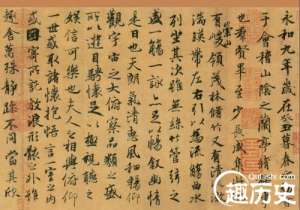 永和九年歲在癸丑暮春
于會稽山陰之蘭亭脩
也羣賢畢至少長咸集
崇山
有峻領茂林脩竹又有清
湍暎帶左右引以為流觴曲水
列坐其次雖無絲竹管弦之
盛一觴一詠亦足以暢敘幽情
是日也天朗氣清惠風和暢仰
觀宇宙之大俯察品類之盛
所以遊目騁懷足以極視聽
娛信可樂也夫人之相與俯仰
一世或取諸懷抱悟言一室之內
或因寄所託放浪形骸之外雖
趣舍萬殊靜躁不同當其欣
趣历史